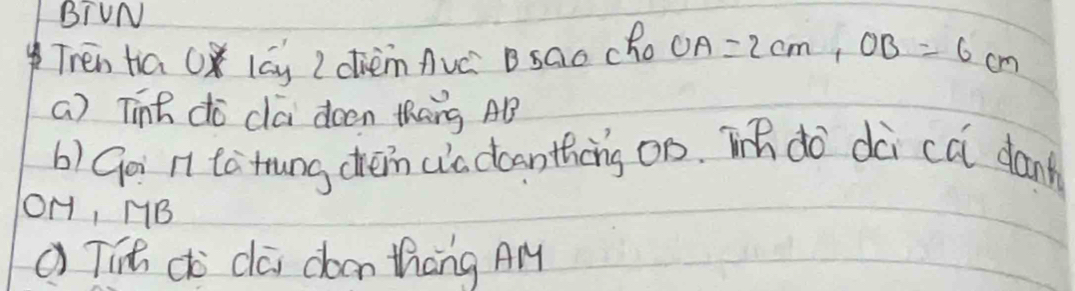 BTVN
Trên tia Ox lấy 2 điểm A và B sao cho OA = 2 cm, OB = 6 cm
a) Tính độ dài đoạn thẳng AB
b) Gọi M là trung điểm của đoạn thẳng OB. Tính độ dài cá
OM, MB
c) Tính độ dài đoạn thẳng AM